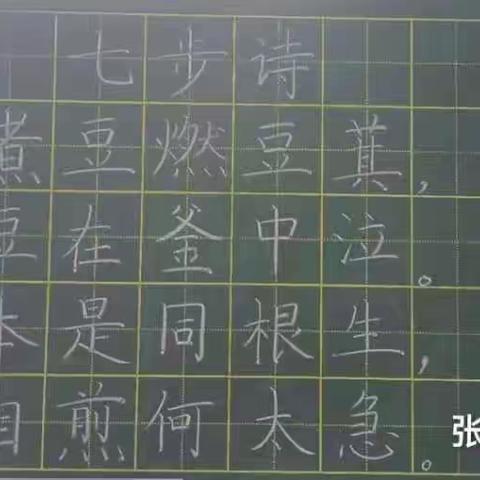 七步诗
煮豆燃豆萁，
豆在釜中泣。
本是同根生，
相煎何太急。
张